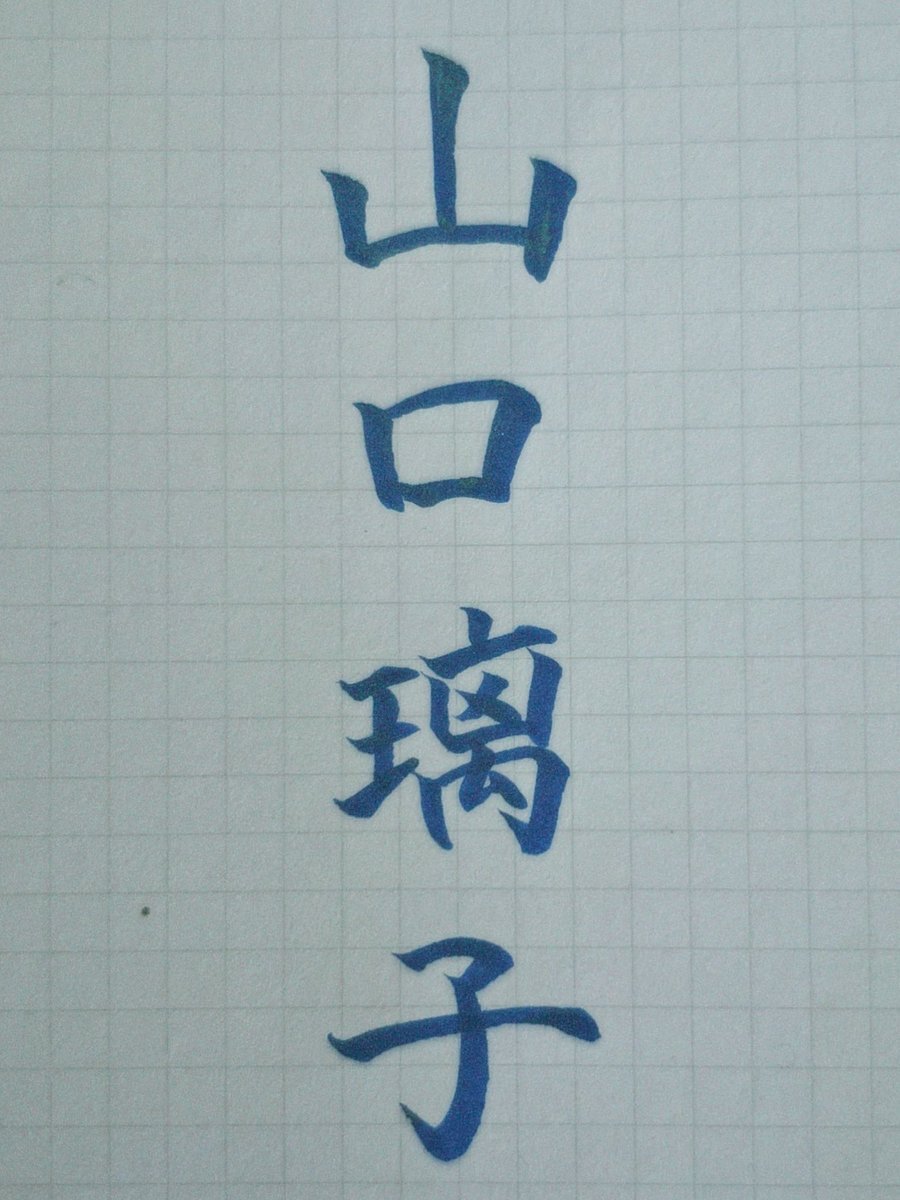 山口璃子